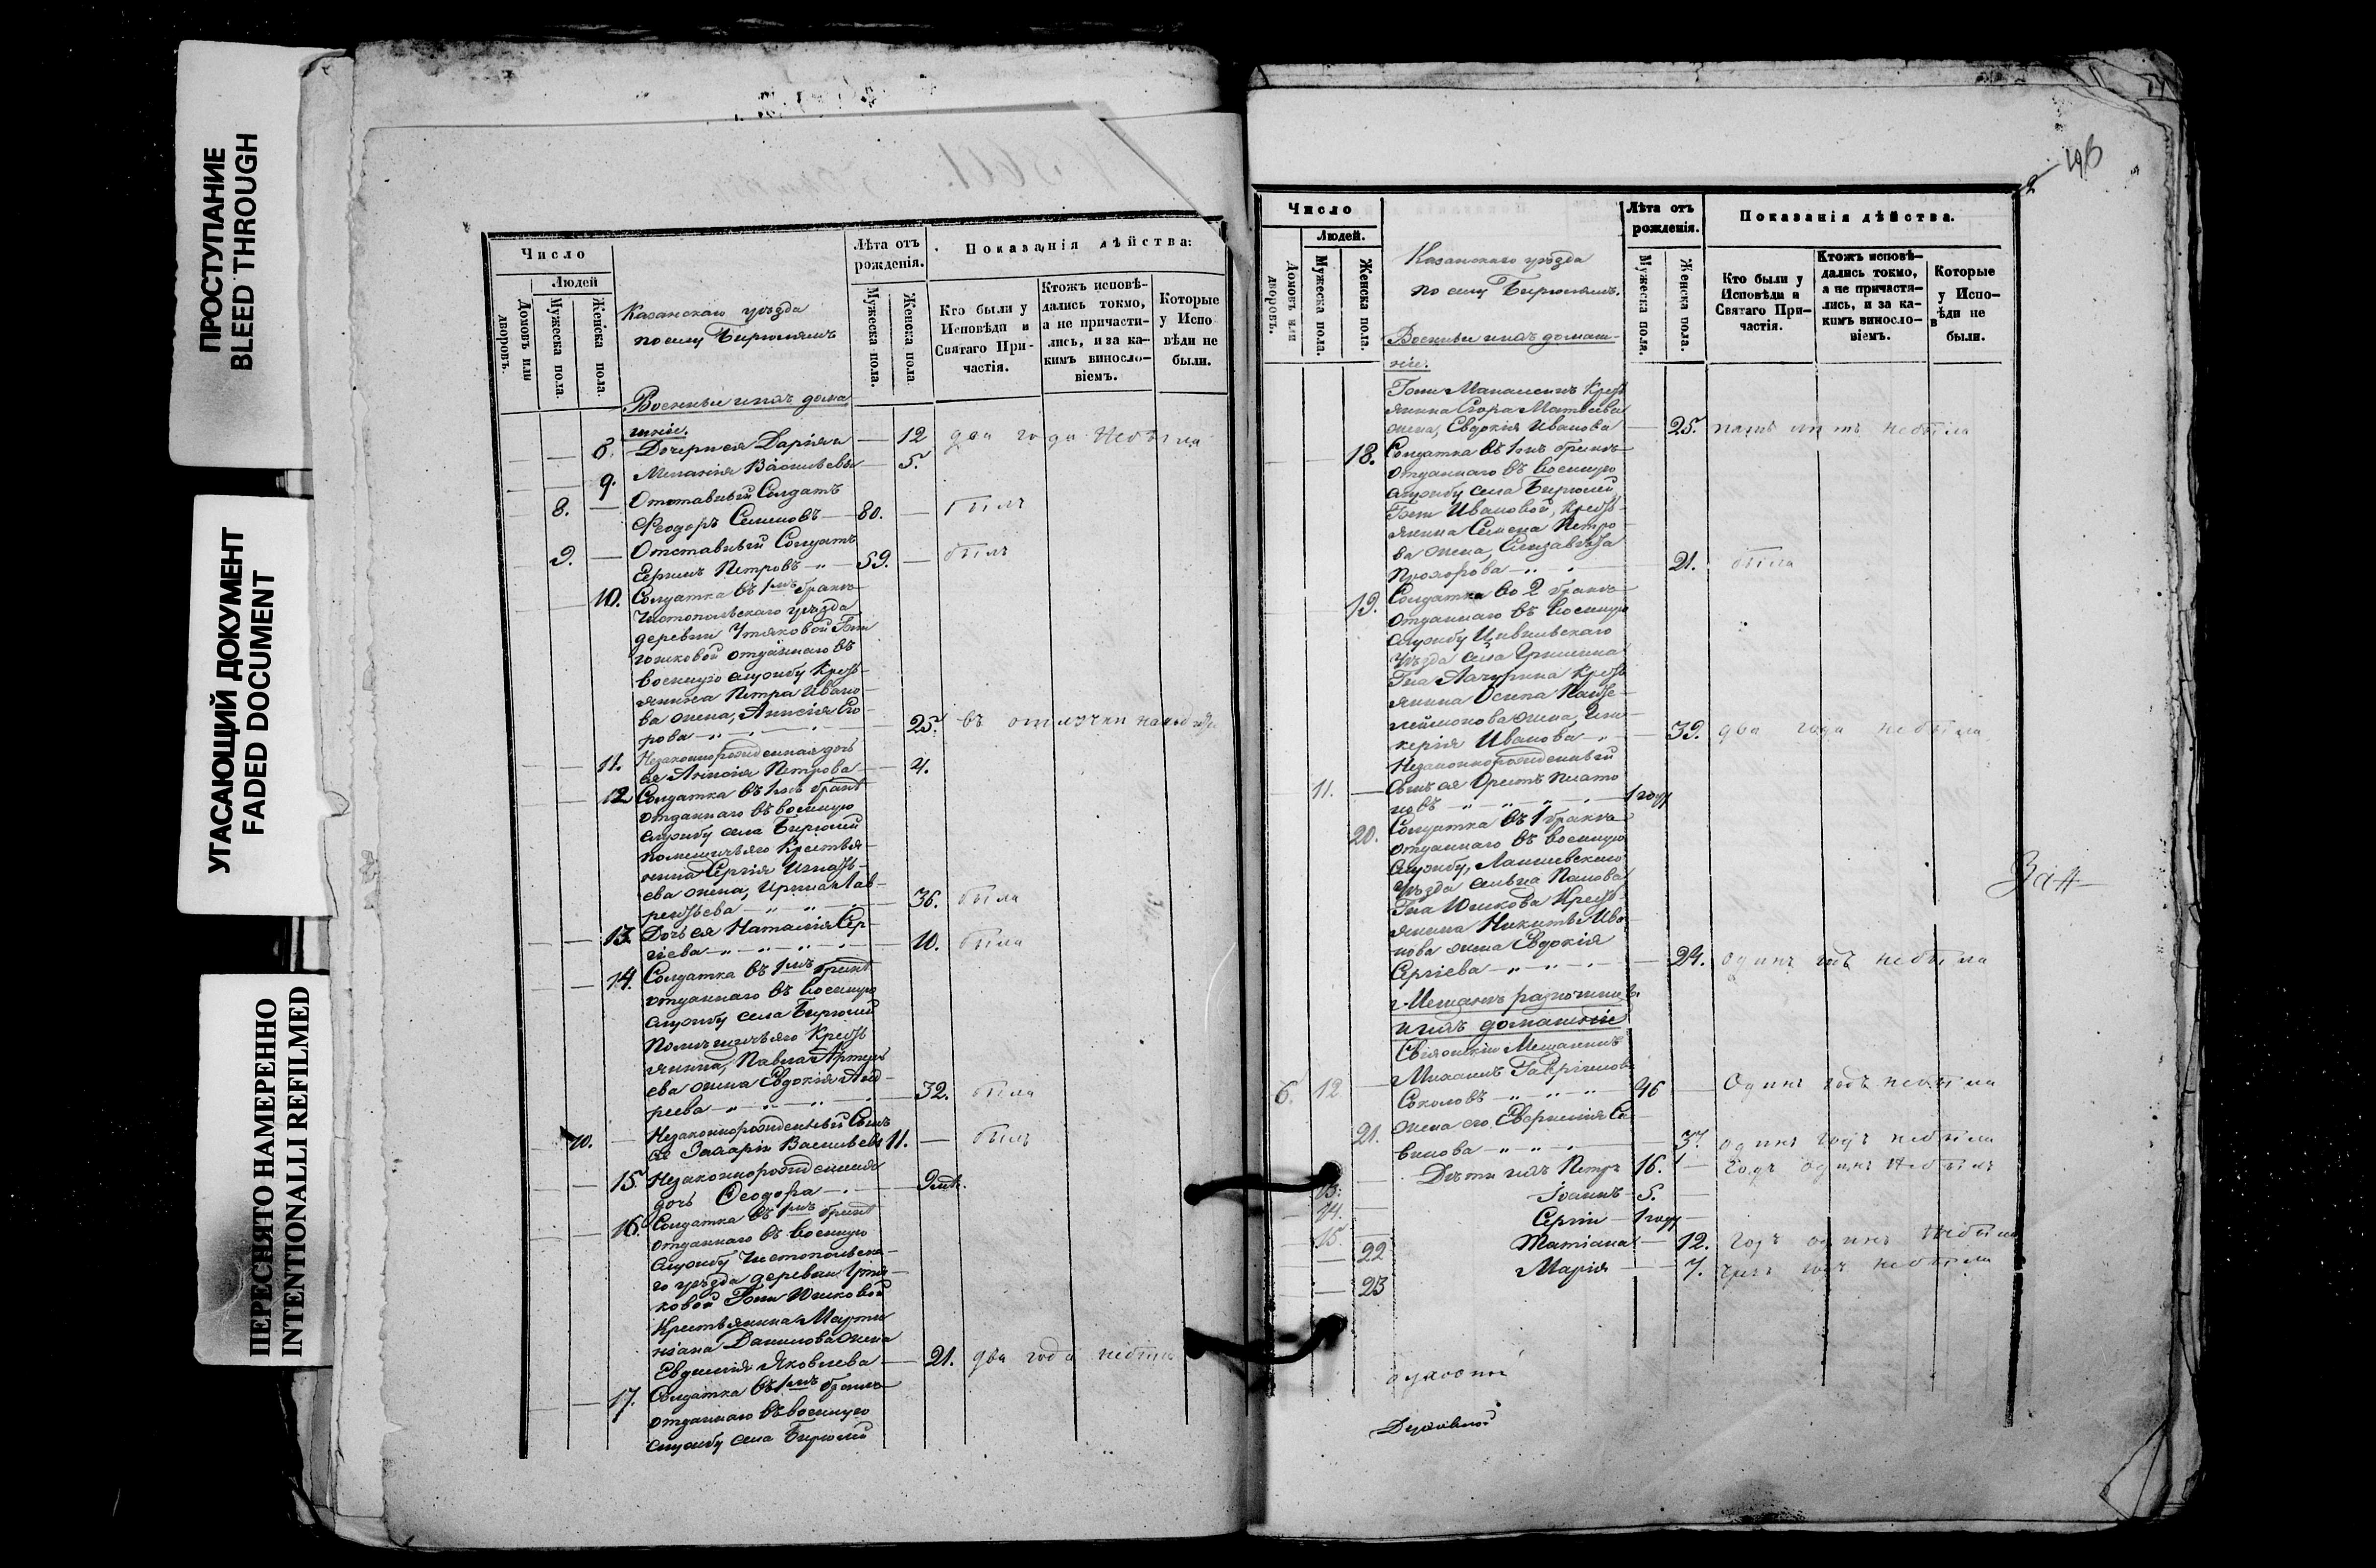 ПРОСТУПАНИЕ
BLEED THROUGH
УГАСАЮЩИЙ ДОКУМЕНТ
FADED DOCUMENT
ПЕРЕСНЯТО НАМЕРЕННО
INTENTIONALLI REFILMED
Число
Людей
Домовъ или дворовъ.
Мужеска пола.
Женска пола.
Казанскаго уѣзда
по селу Бирюлямъ
Лѣта отъ рожденія.
Мужеска пола.
Женска пола
Показанія дѣйства:
Кто были у Исповѣди и Святаго Причастія.
Ктожъ исповѣдались токмо, а не причастились, и за какимъ винословіемъ.
Которые у Исповѣди не были.
Военные и ихъ дома
шніе.
8. Дочери ея Дарія и — 12 два года небыла
9. Меланія Васильевы — 5.
8. — Отставный Солдатъ
Феодоръ Семеновъ — 80. — былъ
9. — Отставный Солдатъ
Сергій Петровъ — 59. — былъ
10. Солдатка въ 1мъ бракѣ
Чистопольскаго уѣзда
деревни
отданнаго въ
военную службу Кресть-
янина Петра Ивано-
ва жена, Анисія Его-
рова — 25. въ отлучки
11. Незаконнорожденная дочь
ея Петрова — 4.
12 Солдатка въ 1мъ бракѣ
отданнаго въ военную
службу села Бирюлей
помещичьяго Крестья-
нина Сергія Игнать-
ева жена, Ирина Лав-
рентьева — 36. была
13. Дочь ея Наталія Сер-
гіева — 10. была
14. Солдатка въ 1мъ бракѣ
отданнаго въ военную
службу села Бирюлей
помещичьяго Кресть
янина, Павла
ева жена Евдокія Анд-
реева — 32. была
10. — Незаконнорожденный Сынъ
ея Захарій Васильевъ 11. — былъ
15. Незаконнорожденная
дочь Феодора — 9
16. Солдатка въ 1мъ бракѣ
отданнаго въ военную
службу Чистопольска-
го уѣзда деревни
ковой Гжи Юшковой
Крестьянина Марти
ніана Данилова жена
Евдокія Яковлева — 21. два года небыла
17. Солдатка въ 1мъ бракѣ
отданнаго въ военную
службу села Бирюлей
196
Число
Людей.
Домовъ или дворовъ.
Мужеска пола.
Женска пола.
Казанскаго уѣзда
по селу Бирюлямъ.
Лѣта отъ рожденія.
Мужеска пола.
Женска пола.
Показанія дѣйства.
Кто были у Исповѣди и Святаго Причастія.
Ктожъ исповѣдались токмо, а не причастились, и за какимъ винословіемъ.
Которые у Исповѣди не были.
Военные и ихъ домаш-
ніе.
Гжи Кресть
янина Егора Матвеева
жена, Евдокія Иванова — 25. пять лѣтъ небыла
18. Солдатка въ 1мъ бракѣ
отданнаго въ военную
службу села Бирюлей
Гжи Ивановой, Кресть-
янина Семена Петро-
ва жена, Елизавѣта
Прохорова — 21. была
19. Солдатка во 2 бракѣ
отданнаго въ военную
службу Цивильскаго
уѣзда села
Гна Кресть
янина Осипа Панте-
леймонова жена, Гли-
керія Иванова — 39. два года небыла
Незаконнорожденный
11. — Сынъ ея Орестъ Плато
новъ — 1 году
20. Солдатка въ 1 бракѣ
отданнаго въ военную
службу, Лаишевскаго
уѣзда сельца Панова
Гна Юшкова Кресть
янина Никиты Ива
нова жена Евдокія
Сергіева — 24. одинъ годъ небыла
Мещане разночинцы
и ихъ домашніе
Свіяжскій Мещанинъ
Михаилъ Гавріиловъ
6. 12 Соколовъ — 46 — Одинъ годъ небыла
21. жена его Евгенія Са-
винова — 37. одинъ годъ небыла
13. — Дѣти ихъ Петръ 16. — Годъ одинъ небылъ
14. — Іоаннъ 5. —
15. — Сергій — 1 году —
22 Татіана — 12. годъ одинъ небыла
23 Марія — 7. годъ небыла
Духовной